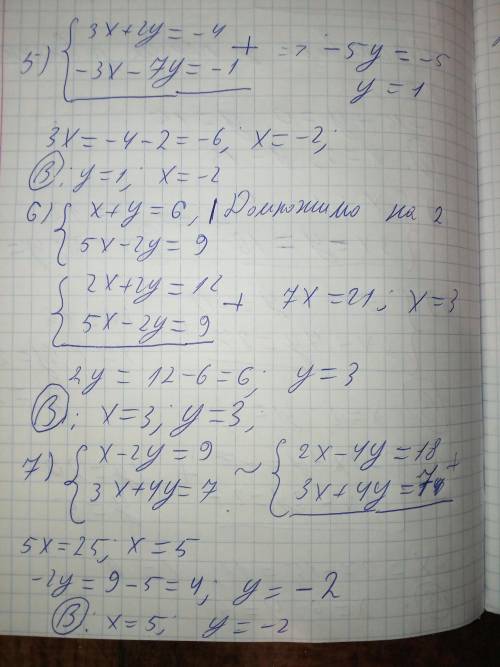 5) { 3x+2y=-4
-3x-7y=-1 + => -5y=-5
y=1
3x=-4-2=-6; x=-2;
В: y=1; x=-2
6) { x+y=6, | Домножимо на 2
5x-2y=9
{ 2x+2y=12
5x-2y=9 + 7x=21; x=3
2y=12-6=6; y=3
В: x=3; y=3;
7) { x-2y=9 ~ { 2x-4y=18 +
3x+4y=7 3x+4y=7
5x=25; x=5
-2y=9-5=4; y=-2
В: x=5; y=-2